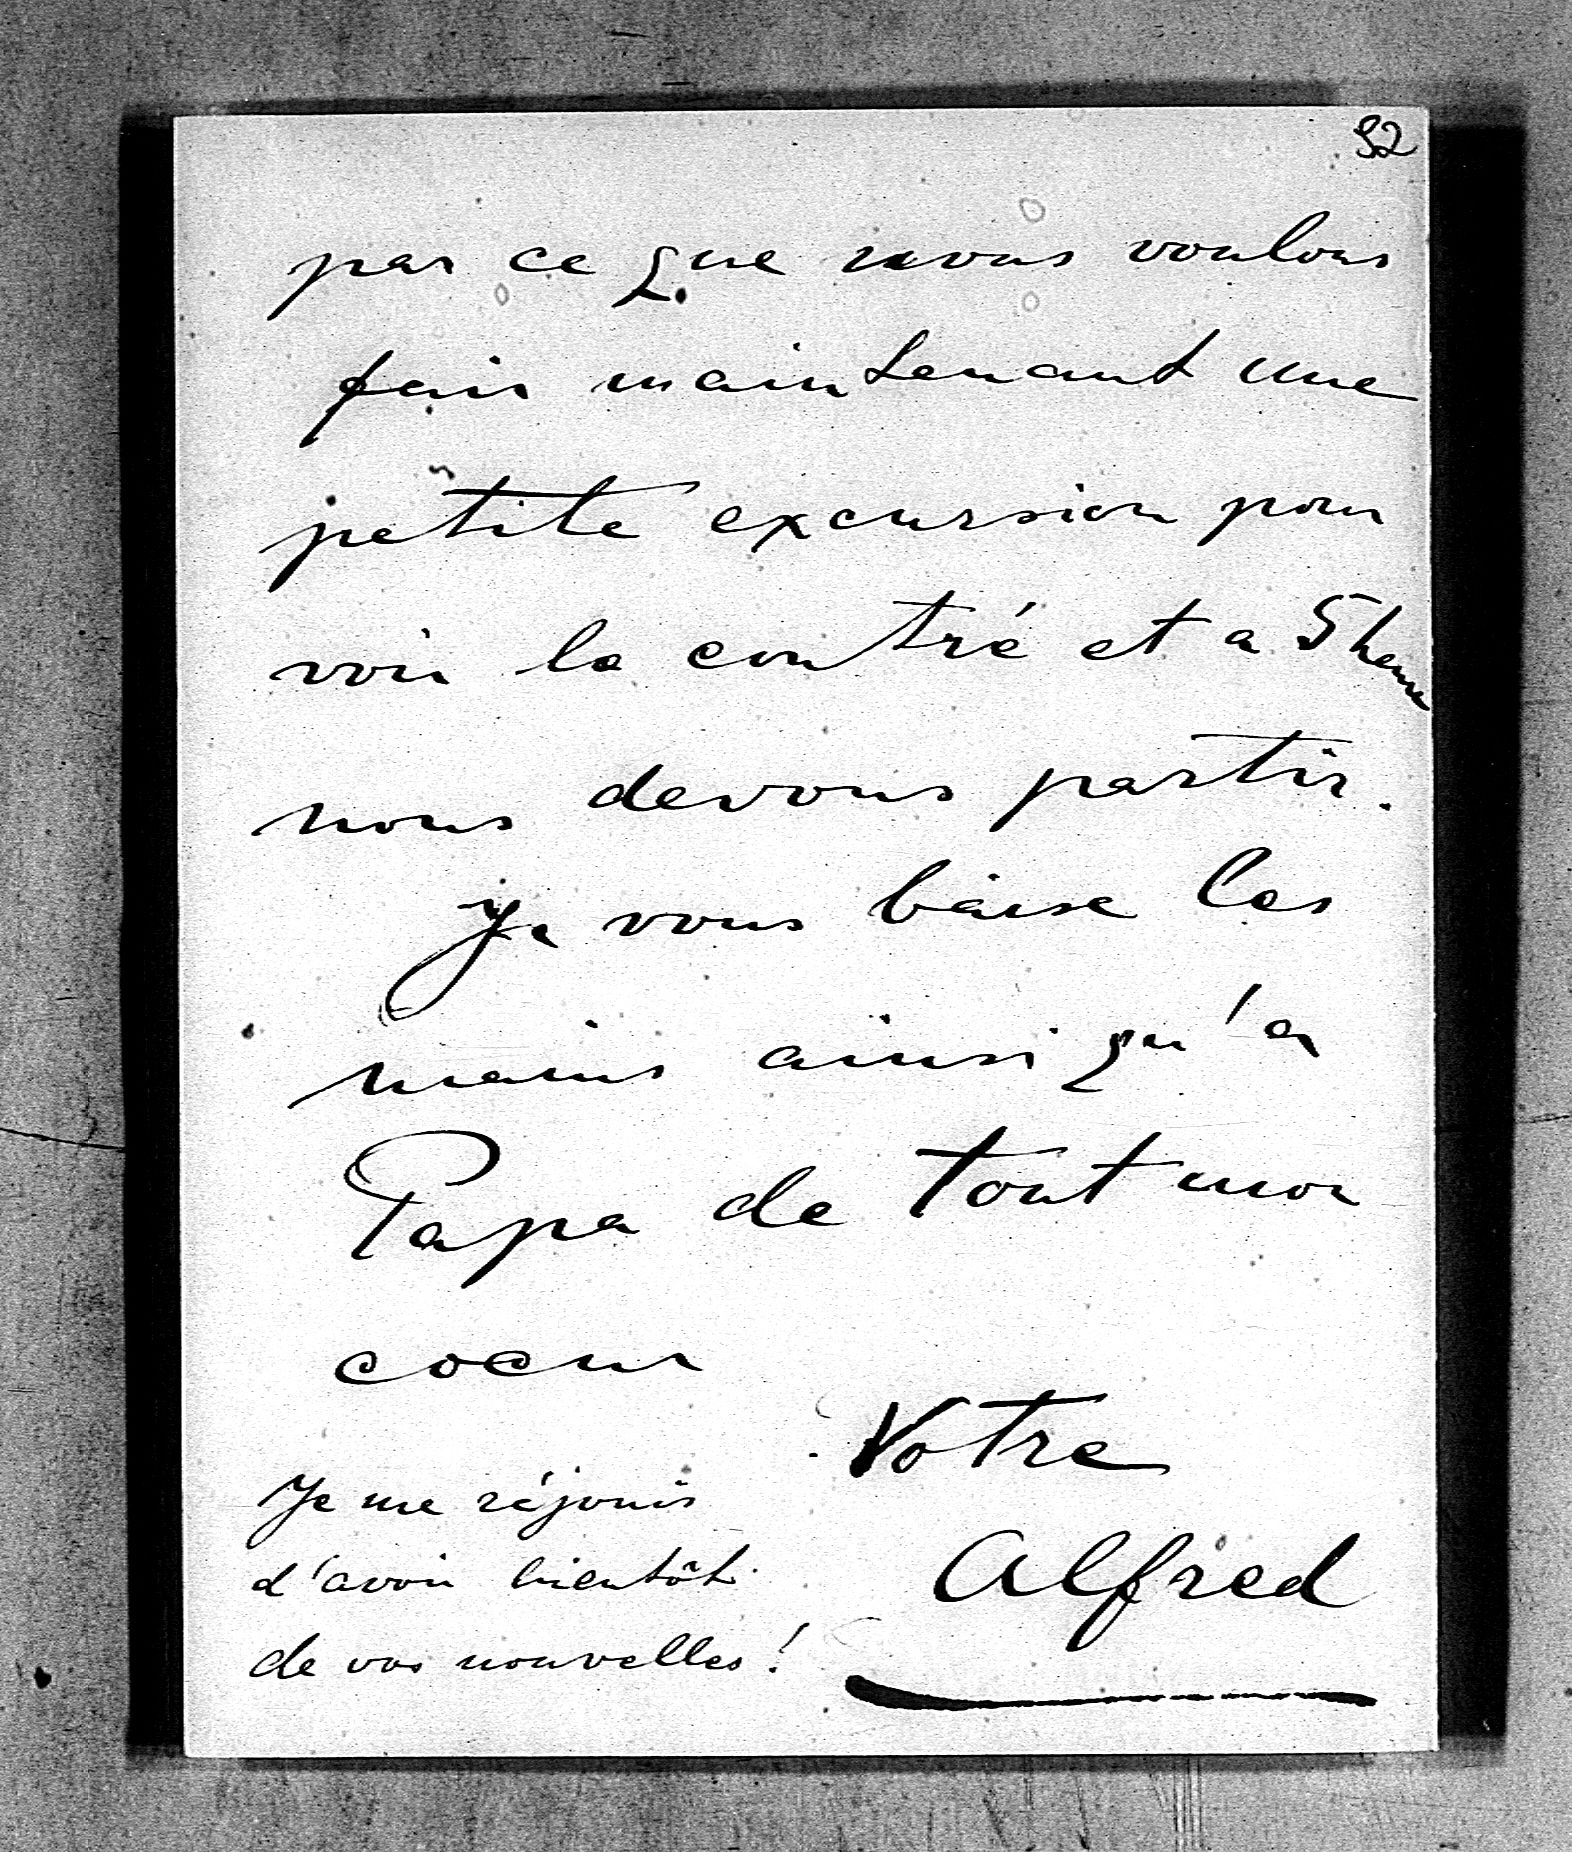 92
par ce que nous voulons
fair maintenant une
petite excursion pour
voir la contré et a 5 heure
nous devons partir.
Je vous baise les
mains ainsi qu'a
Papa de tout mon
coeur
Votre
Alfred
Je me réjouis
d'avoir bientôt
de vos nouvelles!